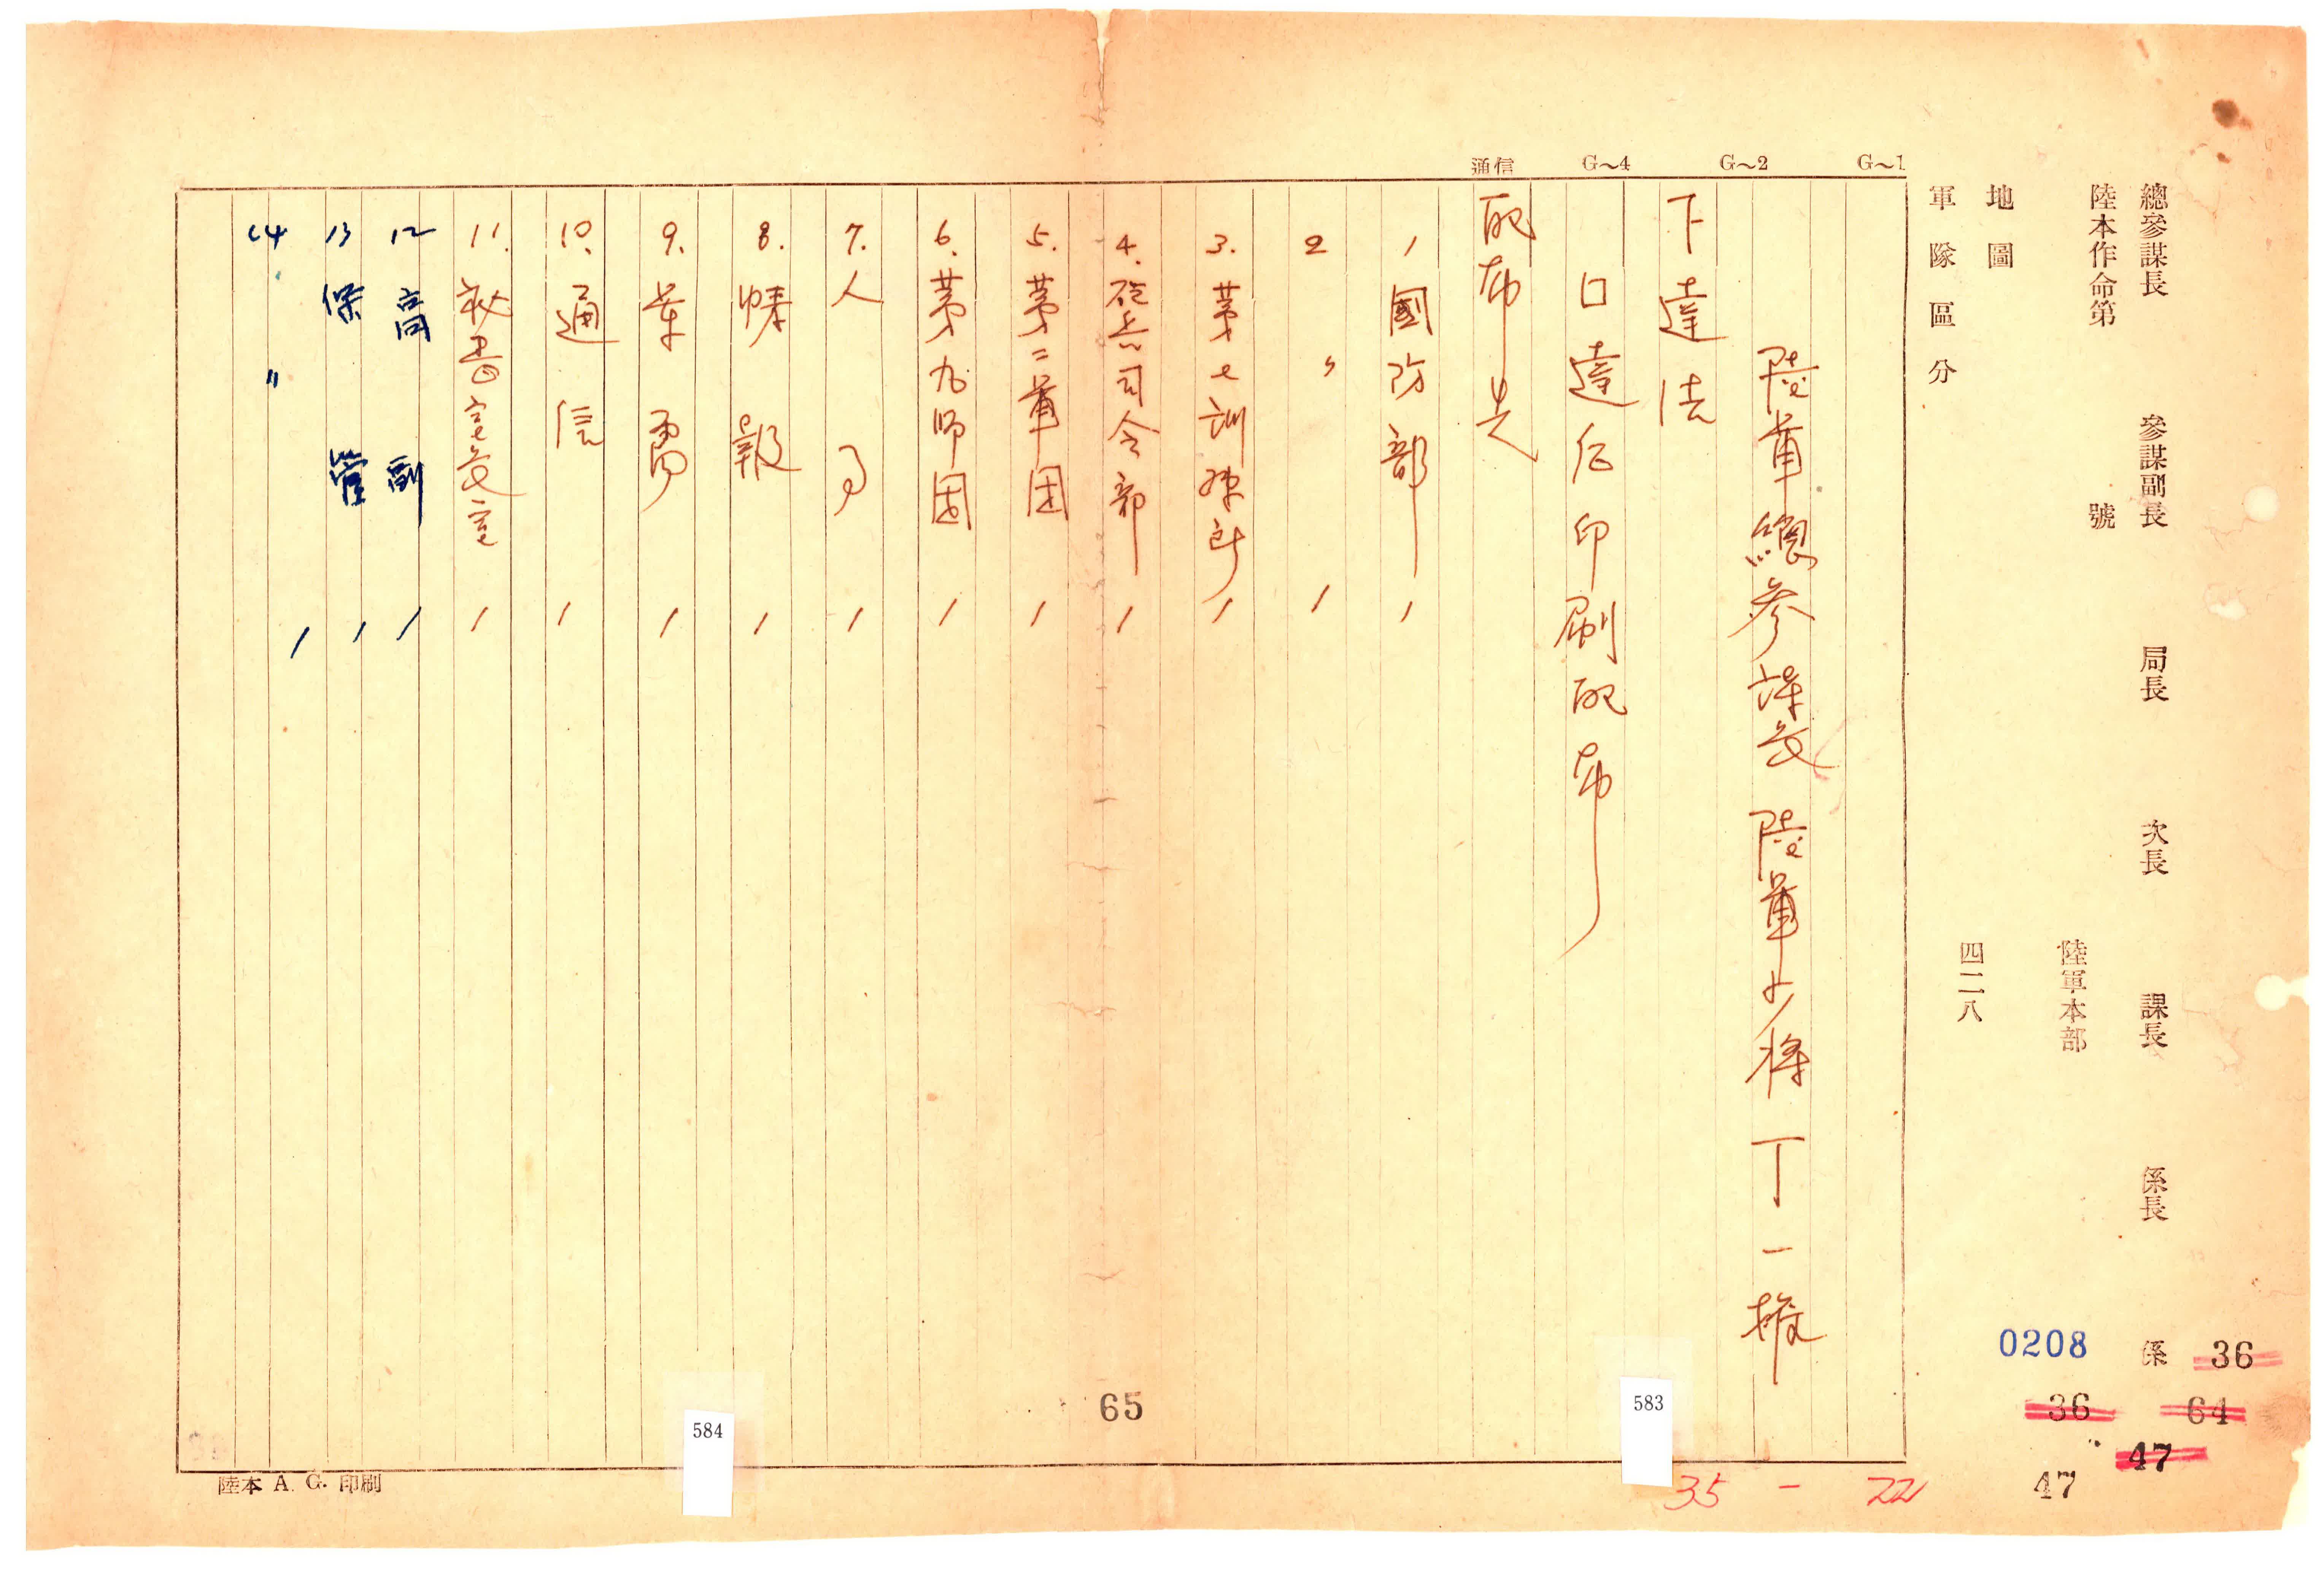 總參謀長　參謀副長　局長　次長　課長　係長　係
陸本作命第　號
陸軍本部
地圖
四二八
軍隊區分
G~1
G~2
G~4
通信
陸軍總參謀長 陸軍少將 丁一權
下達法
口達后印刷配布
配布先
1 國防部 1
2 〃 1
3. 第七訓練所 1
4. 砲兵司令部 1
5. 第二軍団 1
6. 第九師団 1
7. 人事 1
8. 情報 1
9. 軍需 1
10. 通信 1
11. 秘書室長室 1
12 高副 1
13 保管 1
14 〃 1
陸本 A. G. 印刷
584
65
583
0208
36
36
64
47
47
35 - 22